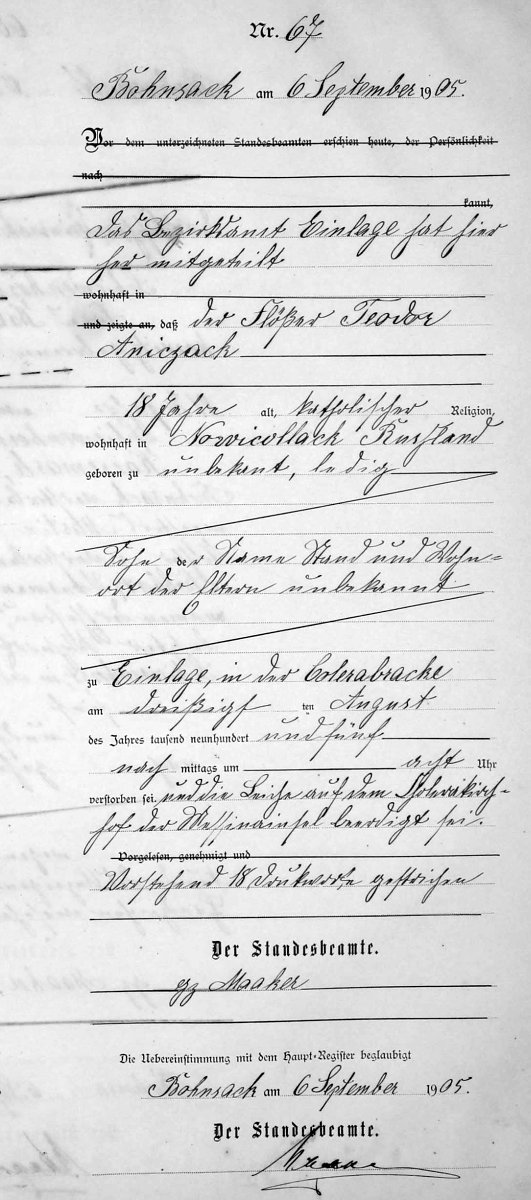 Nr. 67
Bohnsack am 6 September 1905.
Vor dem unterzeichneten Standesbeamten erschien heute, der Persönlichkeit
nach
kannt,
das Bezirksamt Einlage hat hier
her mitgeteilt
wohnhaft in
und zeigte an, daß der Flößer Teodor
Aniczack
18 Jahre alt, katholischer Religion,
wohnhaft in Nowicollack Rußland
geboren zu unbekant, ledig
Sohn der Name Stand und Wohn-
ort der Eltern unbekannt
zu Einlage, in der Colerabracke
am dreißigs ten August
des Jahres tausend neunhundert und fünf
nach mittags um acht Uhr
verstorben sei und die Leiche auf dem Cholerakirch-
hof der Messinainsel beerdigt sei.
Vorgelesen, genehmigt und
Vorstehend 18 Drukworte gestrichen
Der Standesbeamte.
gz Maaker
Die Uebereinstimmung mit dem Haupt-Register beglaubigt
Bohnsack am 6 September 1905.
Der Standesbeamte.